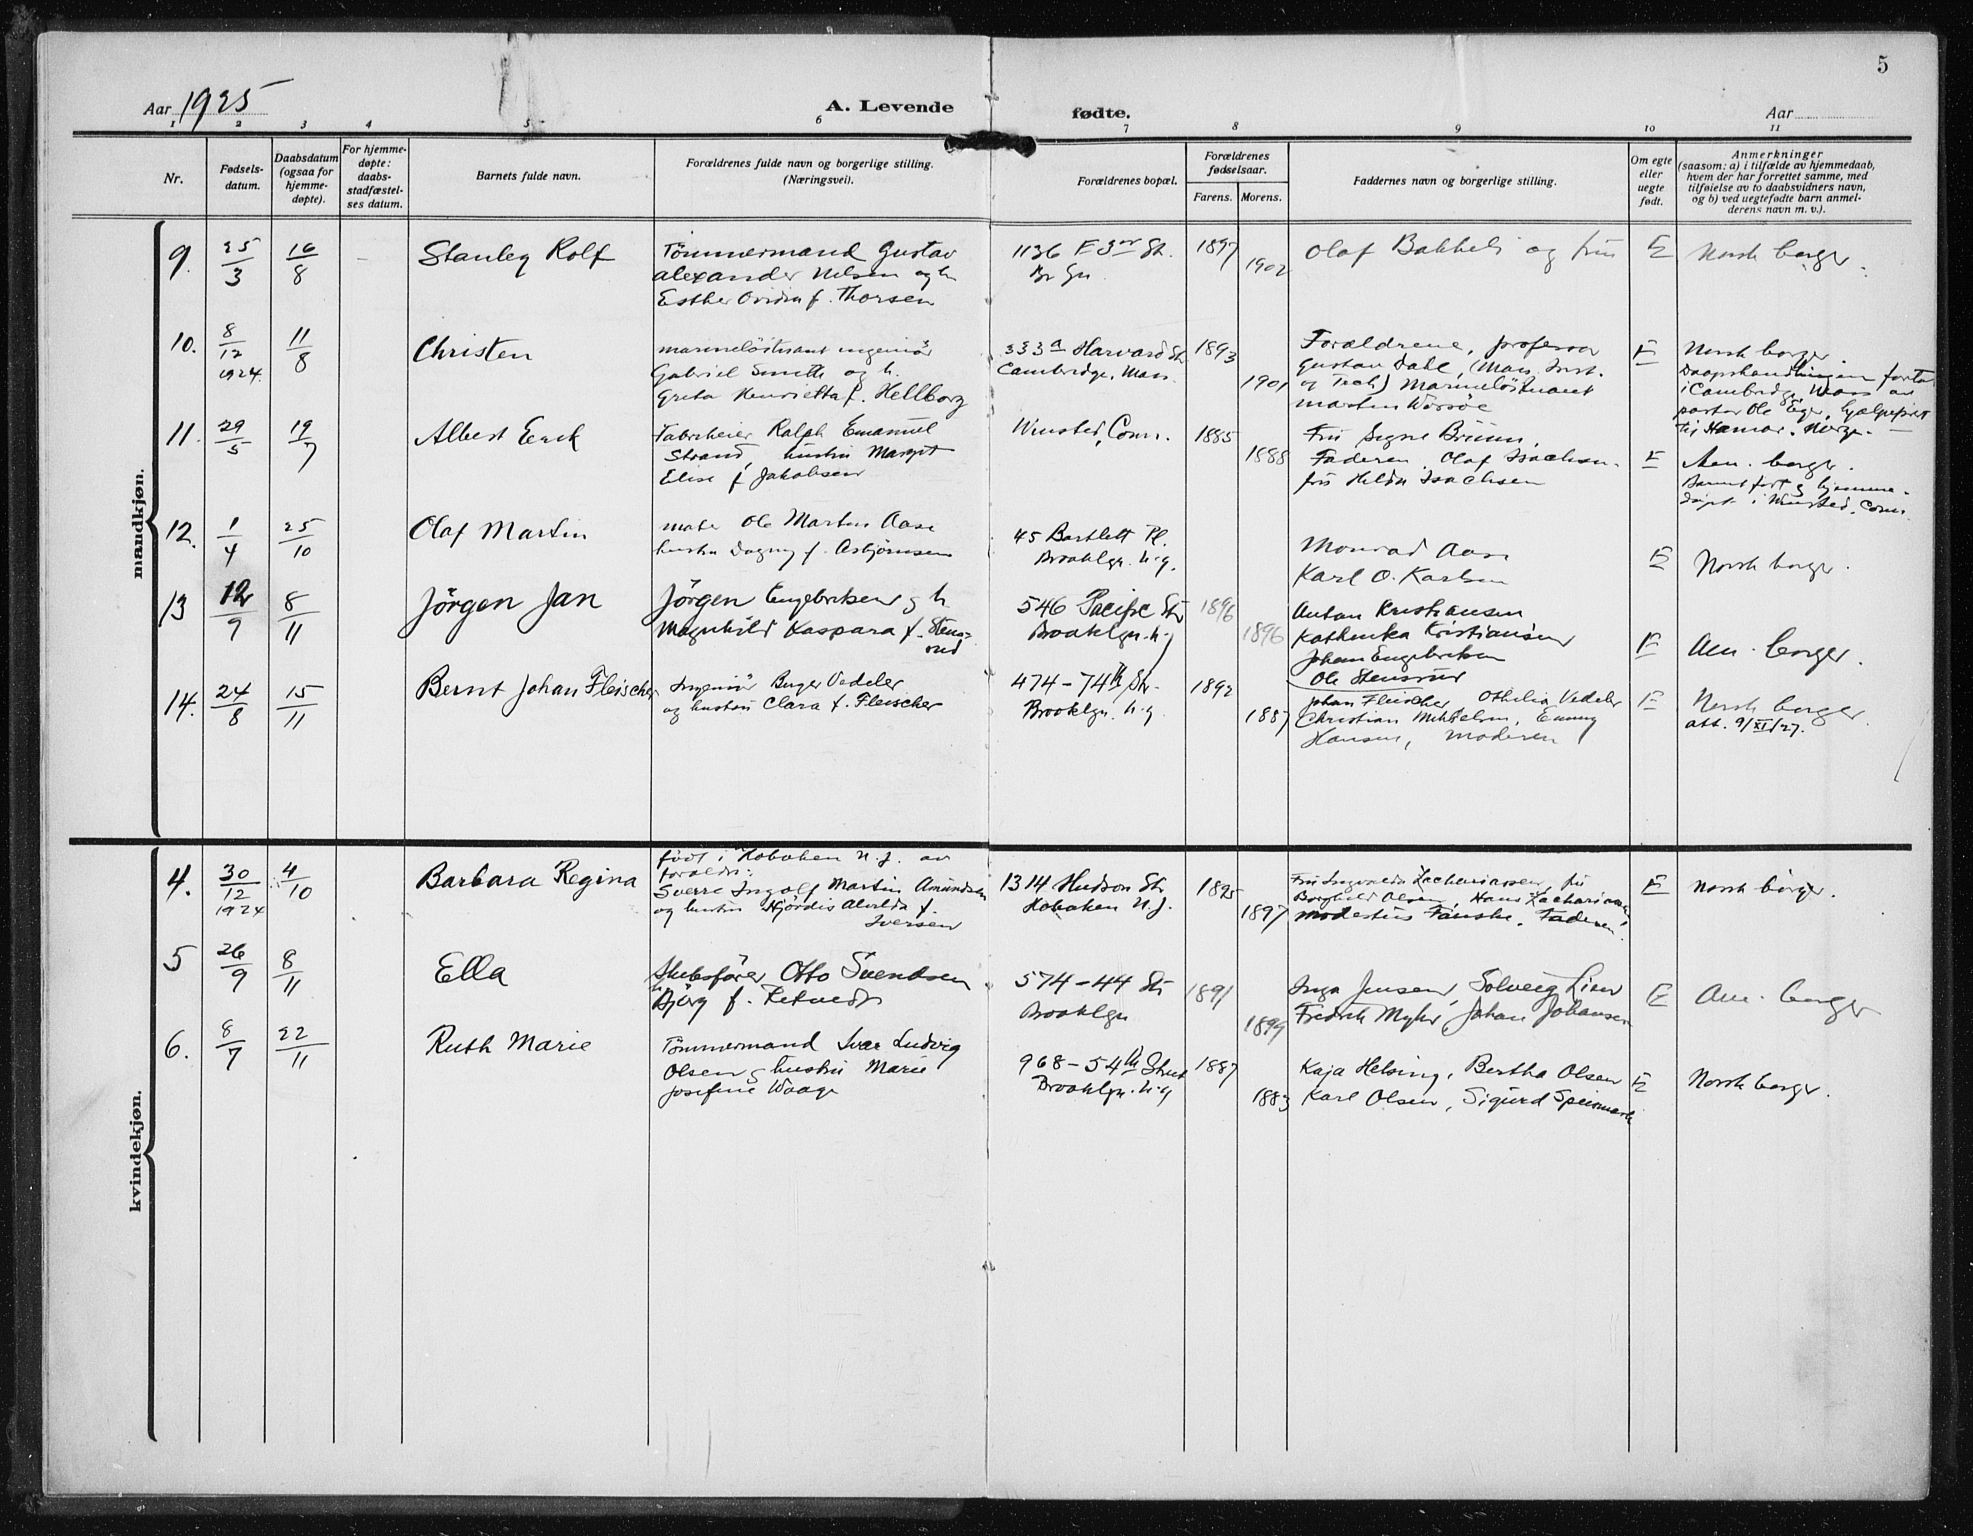 5
Aar 1925
A. Levende
fødte.
Aar
1 2 3 4 5 6 7 8 9 10 11
Nr.
Fødsels-
datum.
Daabsdatum
(ogsaa for
hjemme-
døpte).
For hjemme-
døpte:
daabs-
stadfæstel-
ses datum.
Barnets fulde navn.
Forældrenes fulde navn og borgerlige stilling.
(Næringsvei).
Forældrenes bopæl.
Forældrenes
fødselsaar.
Farens. Morens.
Faddernes navn og borgerlige stilling.
Om egte
eller
uegte
født.
Anmerkninger
(saasom: a) i tilfælde av hjemmedaab,
hvem der har forrettet samme, med
tilføielse av to daabsvidners navn,
og b) ved uegtefødte barn anmel-
derens navn m. v.).
mandkjøn.
9. 25/3 16/8 Stanley Rolf
Tömmermand Gustav
Alexander Nelsen og h.
Esther f. Thorsen
1136 F 3rd St.
1897
1902
Olaf Bakkeli og fru
E
Norsk borger.
10. 8/12 1924. 11/8 Christen
marinelöitnant ingeniör
Gabriel Smith og h.
Greta Henrietta f. Hellborg
333a Harvard St.
Cambridge, Mass.
1893
1901
Foraldrene, professor
Gustav Dahl, (Mass. Inst.
og Tech.) Marinelöitnant
Martin
E
Norsk borger.
Daapshandlingen
i Cambridge, Mass av
pastor Ole Eger, hjælpeprest
til Hamar. Norge.
11. 29/5 19/7 Albert Erik
Ralph Emanuel
Strand, hustru Margit
Elise f. Jakobsen
Winsted, Conn.
1885
1888
Fru Signe Bruun,
Faderen. Olaf Isachsen.
fru Hilda Isachsen
E
Am. borger.
hjemme-
döpt i Winsted, Conn.
12. 1/4 25/10 Olaf Martin
maler Ole Martin Aase
hustru Dagny f. Asbjörnsen
45 Bartlett Pl.
Brooklyn. N.y.
Monrad Aase
Karl O. Karlsen
E
Norsk borger.
13 12/9 8/11 Jörgen Jan
Jörgen Engebretsen og h
Magnhild Kaspara f. Stens-
rud
546 Pacific Str
Brooklyn. N.y
1896
1896
Anton Kristiansen
Kathinka Kristiansen
Johan Engebretsen
Ole Stensrud
E
Am. borger.
14. 24/8 15/11 Bernt Johan Fleischer
Ingeniör Birger Vedeler
og hustru Clara f. Fleischer
474-74th Str.
Brooklyn. N.y.
1892
1887
Johan Fleischer, Othilia Vedeler
Christian Mikkelsen, Emmy
Hansen, Moderen
E
Norsk borger.
att. 9/XI/27.
kvindekjøn.
4. 30/12 1924 4/10 Barbara Regina
födt i Hoboken N.J. av
foraldr:
Sverre Ingolf Martin Amundsen
og hustru Hjördis Alvilda f.
Iversen
1314 Hudson Str
Hoboken N.J.
1895
1897
Fru Ingvalda Zachariassen, fru
Borghild Olsen, Hans Zachariassen,
Modestus Fanske. Faderen.
E
Norsk borger.
5 26/9 8/11 Ella
Skibsförer Otto Svendsen
Björg f.
574-44 Str
Brooklyn
1891
1899
Inga Jensen, Solveig Lien
Fredrik Myhr, Johan Johansen
E
Am. borger
6. 8/7 22/11 Ruth Marie
Tömmermand Ivar Ludvig
Olsen og hustru Marie
Josefine Waage
968-54th Street
Brooklyn. N.y
1887
1883
Kaja Helsing, Bertha Olsen
Karl Olsen, Sigurd
E
Norsk borger.